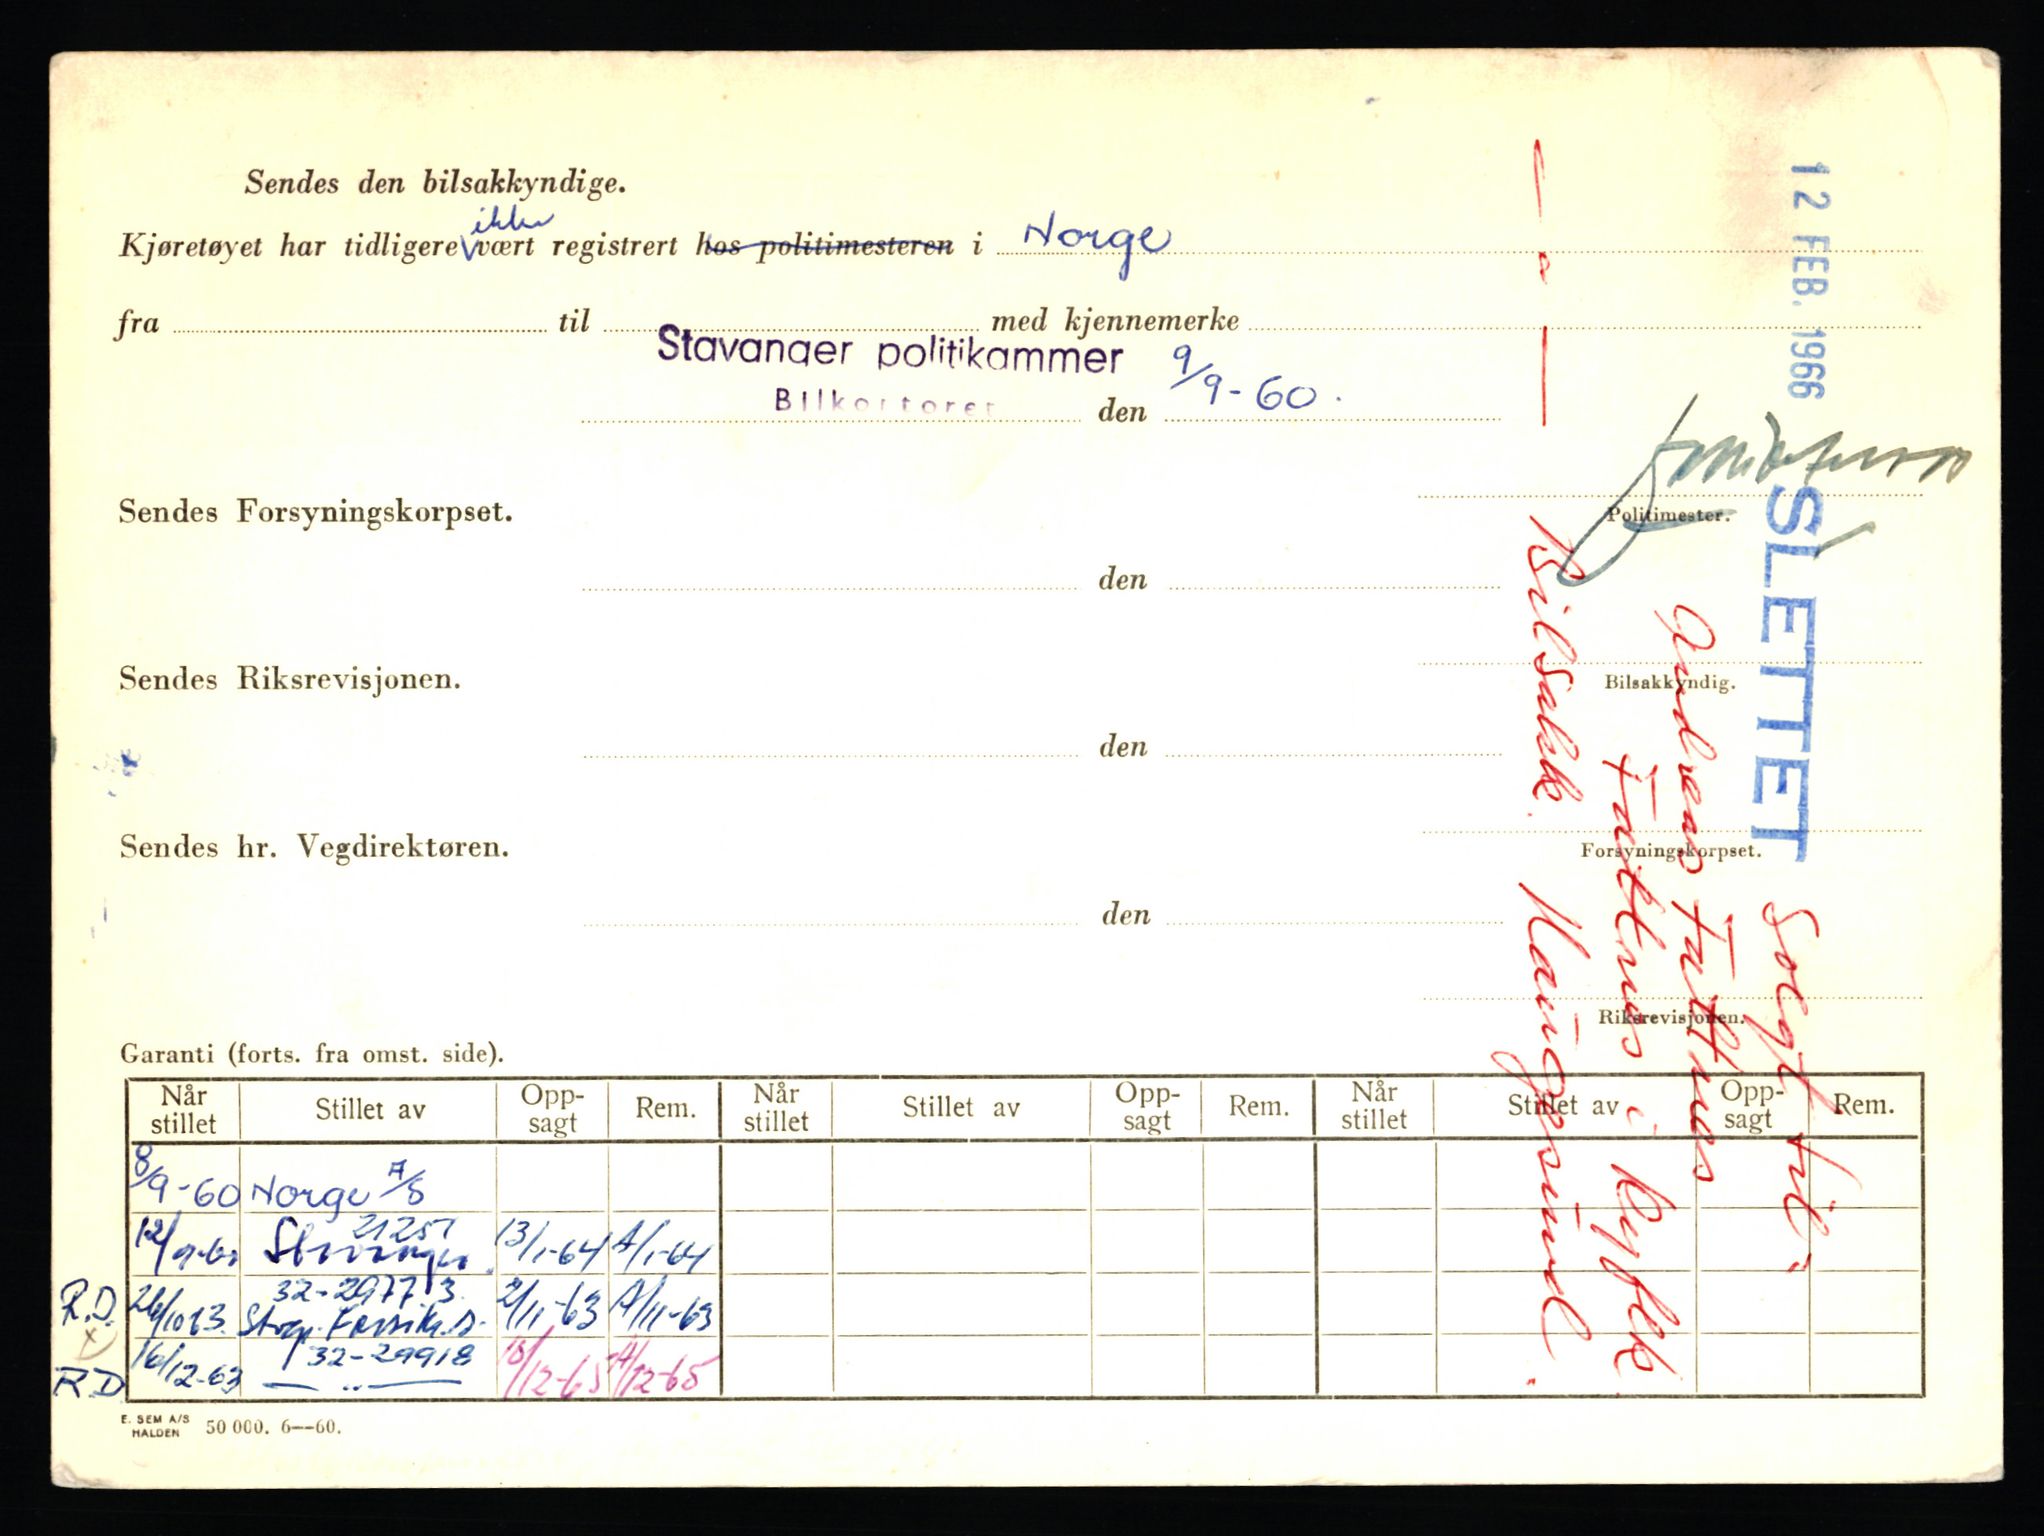 Sendes den bilsakkyndige.
ikke
Kjøretøyet har tidligere vært registrert hos politimesteren i Norge
fra til med kjennemerke
Stavanger politikammer
Bilkontoret den 9/9-60.
Politimester.
Sendes Forsyningskorpset.
den
Bilsakkyndig.
Sendes Riksrevisjonen.
den
Forsyningskorpset.
Sendes hr. Vegdirektøren.
den
Riksrevisjonen.
Garanti (forts. fra omst. side).
Når stillet Stillet av Opp-sagt Rem. Når stillet Stillet av Opp-sagt Rem. Når stillet Stillet av Opp-sagt Rem.
8/9-60 Norge A/S
21251
12/9-60 Stavanger 13/1-64 A/1-64
32-29773
R.D. 26/10 63. Stvgr. Forsik. 2/11-63 A/11-63
32-29918
R.D 16/12-63 — " — 10/12-65 A/12-65
E. SEM A/S
HALDEN 50 000. 6—60.
12 FEB. 1966
SLETTET
Solgt til:
Andreas Fattnes
Fattnes i Ryfylk
— " — Bilsakk. Haugesund.